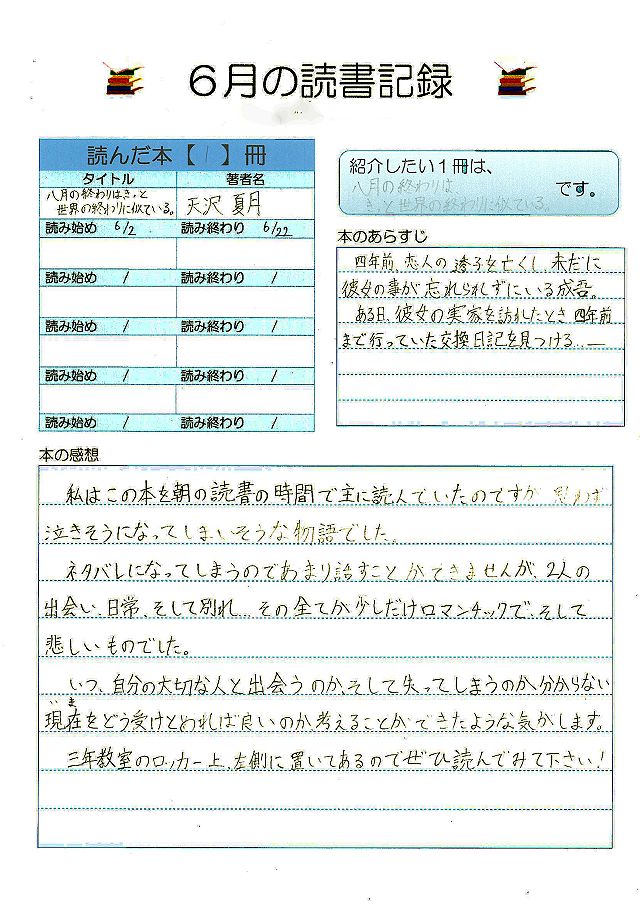 6月の読書記録
読んだ本【1】冊
タイトル 著者名
八月の終わりはきっと
世界の終わりに似ている。
天沢 夏月
読み始め 6/2 読み終わり 6/22
読み始め / 読み終わり /
読み始め / 読み終わり /
読み始め / 読み終わり /
読み始め / 読み終わり /
紹介したい1冊は、
八月の終わりは
きっと世界の終わりに似ている
です。
本のあらすじ
四年前、恋人の透子を亡くし、未だに
彼女の事が忘れられずにいる成吾。
ある日、彼女の実家を訪れたとき四年前
まで行っていた交換日記を見つける...__
本の感想
私はこの本を朝の読書の時間で主に読んでいたのですが 思わず
泣きそうになってしまいそうな物語でした。
ネタバレになってしまうのであまり話すことができませんが、2人の
出会い、日常、そして別れ... その全てが少しだけロマンチックで、そして
悲しいものでした。
いつ、自分の大切な人と出会うのか、そして失ってしまうのか、分からない
現在をどう受けとめれば良いのか、考えることができたような気がします。
いま
三年教室のロッカー上、左側に置いてあるのでぜひ読んでみて下さい!